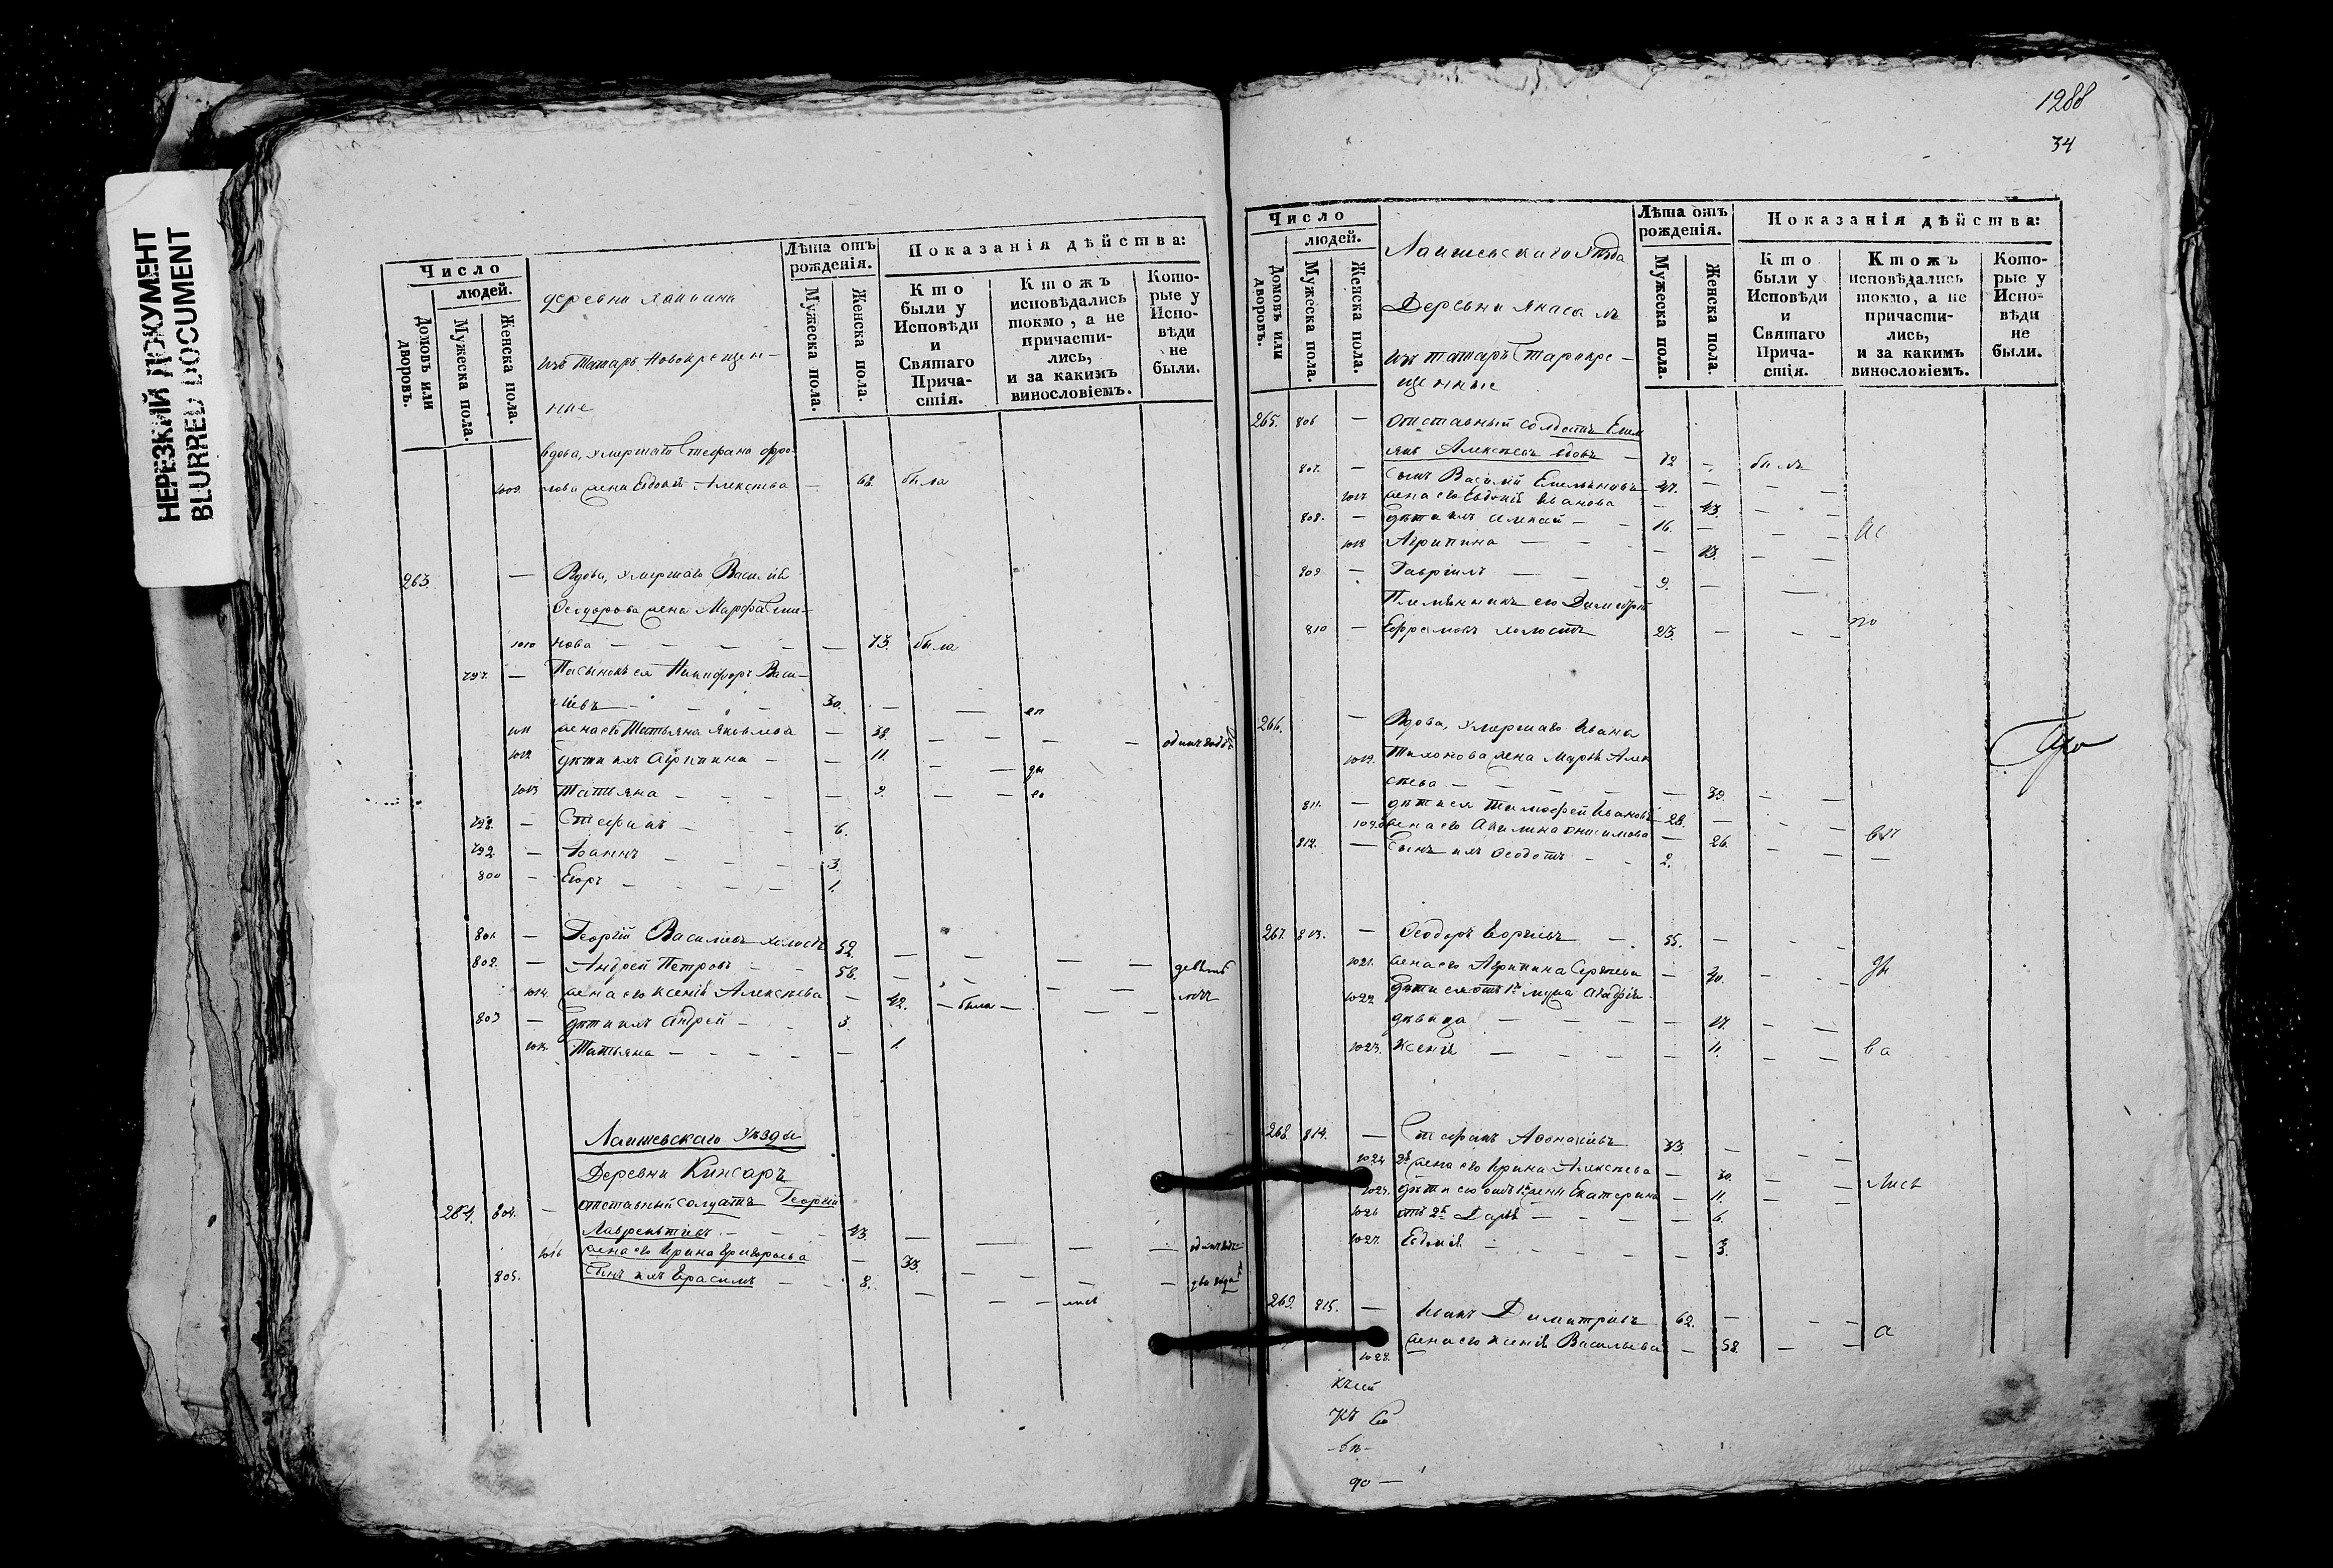 НЕРЕЗКИЙ ДОКУМЕНТ
BLURRED DOCUMENT
Число
людей.
Домовъ или дворовъ.
Мужеска пола.
Женска пола.
Лѣта отъ рожденія.
Мужеска пола.
Женска пола.
Показанія дѣйства:
Кто были у Исповѣди и Святаго Причастія.
Ктожъ исповѣдались токмо, а не причастились, и за какимъ винословіемъ.
Которые у Исповѣди не были.
деревни
изъ татаръ Новокрещен-
ные
вдова, умершаго Стефана Фро-
1009. лова жена Евдокія Алексѣева — 68. была
263. — Вдова, умершаго Василія
Ѳеодорова жена Марфа Сте-
1010 нова — — — — — 73. была
797. — Пасынокъ ея Никифоръ Васи-
льевъ — — — 30. — —
1011 жена его Татьяна Яковлева — 38. — — — — одинъ годъ
1012 дѣти ихъ Агрипина — — 11. — —
1013 Татьяна — — — — 9. — —
798. — Стефанъ — — 6.
799. — Іоаннъ — — — 3.
800 — Егоръ — — — — 1.
801. — Георгій Васильевъ холостъ 52. — — — —
802. — Андрей Петровъ — — 58. — — — — девять
1014. жена его Ксенія Алексѣева — 42. — была — — — лѣтъ
803 — дѣти ихъ Андрей — — 3.
1015. Татьяна — — — — — 1.
Лаишевскаго уѣзда
Деревни Кинсаръ
264. 804. — отставный солдатъ Георгій
Лаврентіевъ — — — 43. — — — одинъ годъ
1016 жена его Ирина Григорьева — 33. — — — — два года
805. сынъ ихъ Герасимъ — — 8. — — —
1288
34
Число
людей.
Домовъ или дворовъ.
Мужеска пола.
Женска пола.
Лаишевскаго уѣзда
Деревни Янасалъ
изъ татаръ Старокре-
щенные
Лѣта отъ рожденія.
Мужеска пола.
Женска пола.
Показанія дѣйства:
Кто были у Исповѣди и Святаго Причастія.
Ктожъ исповѣдались токмо, а не причастились, и за какимъ винословіемъ.
Которые у Исповѣди не были.
265. 806 — отставный солдатъ Емел
янъ Алексѣевъ вдовъ — 72 — былъ
807. — сынъ Василій Емельяновъ 47. — — —
1017 жена его Евдокія Иванова — 43. — —
808. — дѣти ихъ — — 16. — — —
1018 Агрипина — — — — 13. — —
809 — Гавріилъ — — — 9. — —
Племянникъ его Димитрій
810 — Ефремовъ холостъ 23. — — — по
266. — Вдова, умершаго Ивана
1019. Тихонова жена Марья Алек
сѣева — — — — — 79. — —
811. — дѣти ея Тимофей Ивановъ 28. — — —
1020 жена его Акилина Онисимова — 26. — —
812. — сынъ ихъ Ѳеодотъ — — 2.
267. 813. — Ѳеодоръ — 55. — — —
1021. жена его Агрипина Сергѣева — 40. — —
1022 дѣти ея отъ 1го мужа
дѣвица — — — — 17. — —
1023. Ксенія — — — — 11. — — ва
268. 814. — Стефанъ Аѳонасьевъ 33. — — —
1024 2я жена его Ирина Алексѣева — 30. — —
1025. дѣти его отъ 1й жены Екатерина — 11. — —
1026 отъ 2й Дарья — — — — 6.
1027. Евдокія — — — — — 3.
269. 815. — Иванъ Димитріевъ 62. — — — а
1028. жена его Ксенія Васильева — 58. — —